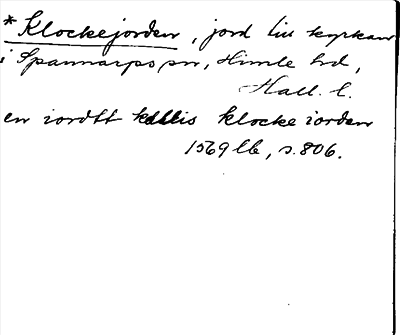 *Klockejorden, jord till kyrkan
i Spannarps sn, Himle hd,
Hall. l.
en iordtt kallis klocke iorden
1569 llb, s. 806.